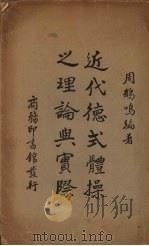 周鶴鳴編著
近代德式體操
之理論與實際
商務印書館發行